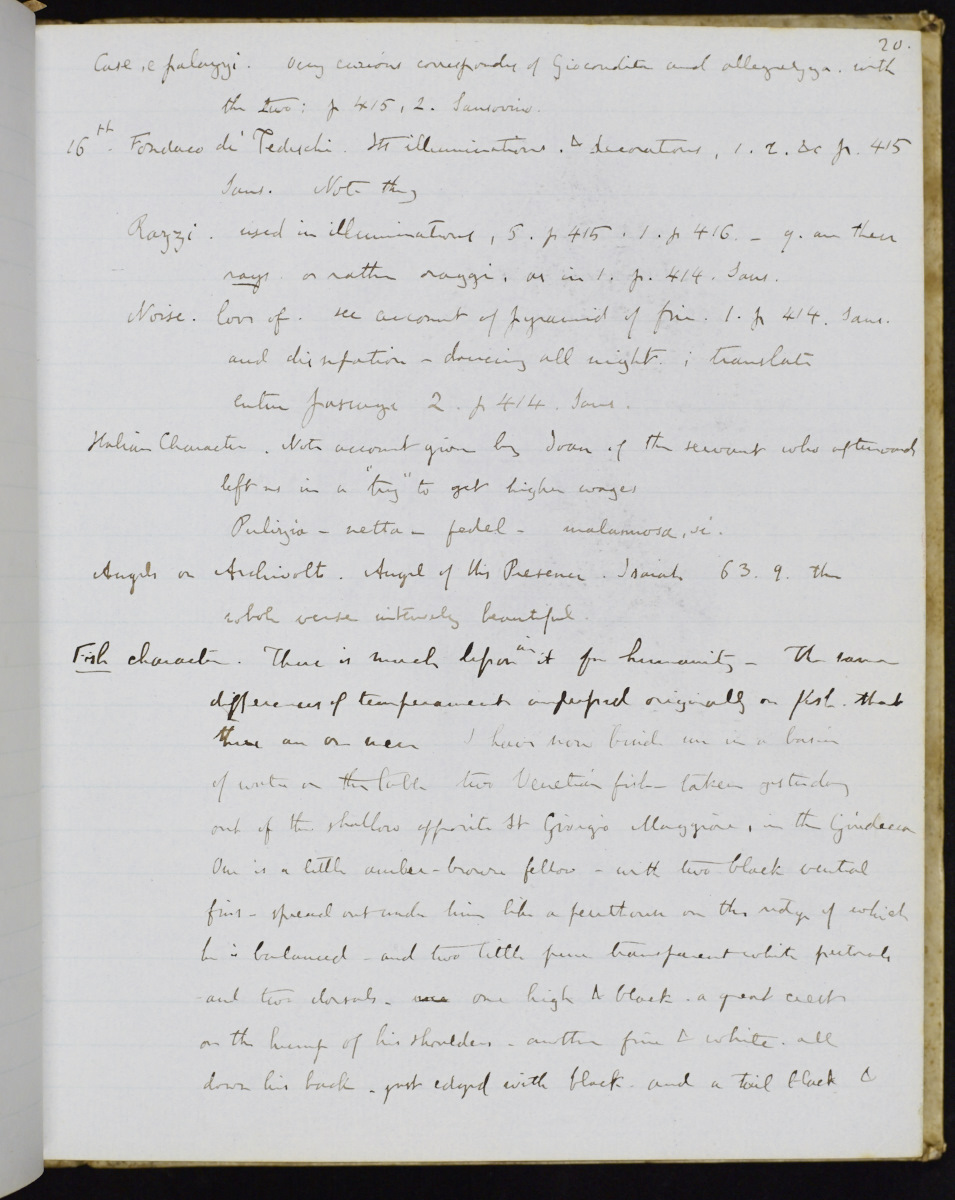 20.
Case, e palazzi. Very curious correspondce of Gioconditá and allegrezza. with
the two: p 415, 2. Sansovino.
16th. Fondaco di Tedeschi. Its illuminations. & decorations, 1. 2. &c p. 415
Sans. Note this
Razzi. used in illuminations, 5. p 415. 1. p 416. – q. are these
rays. or rather raggi. as in 1. p. 414. Sans.
Noise. love of. see account of pyramid of fire. 1. p 414. Sans.
and dissipation – dancing all night. ; translate
entire passage 2. p 414. Sans.
Italian Character. Note account given by Joan of the servant who afterwards
left us in a "try" to get higher wages
Pulizia – netta – fedel – malamorosa, si.
Angels on Archivolt. Angel of this Presence. Isaiah 63. 9. the
whole verse intensely beautiful.
Fish character. There is much lesson in it for humanity – The same
differences of temperament impressed originally on fish. that
there are on men I have now beside me in a basin
of water on the table two Venetian fish – taken yesterday
out of the shallow opposite St Giorgio Maggiore, in the Giudecca
One is a little amber-brown fellow – with two black ventral
fins – spread out under him like a penthouse on the ridge of which
he is balanced – and two little pure transparent white pectorals
and two dorsals. one high & black. a great crest
on the hump of his shoulders – another fine & white. all
down his back – just edged with black. and a tail black &